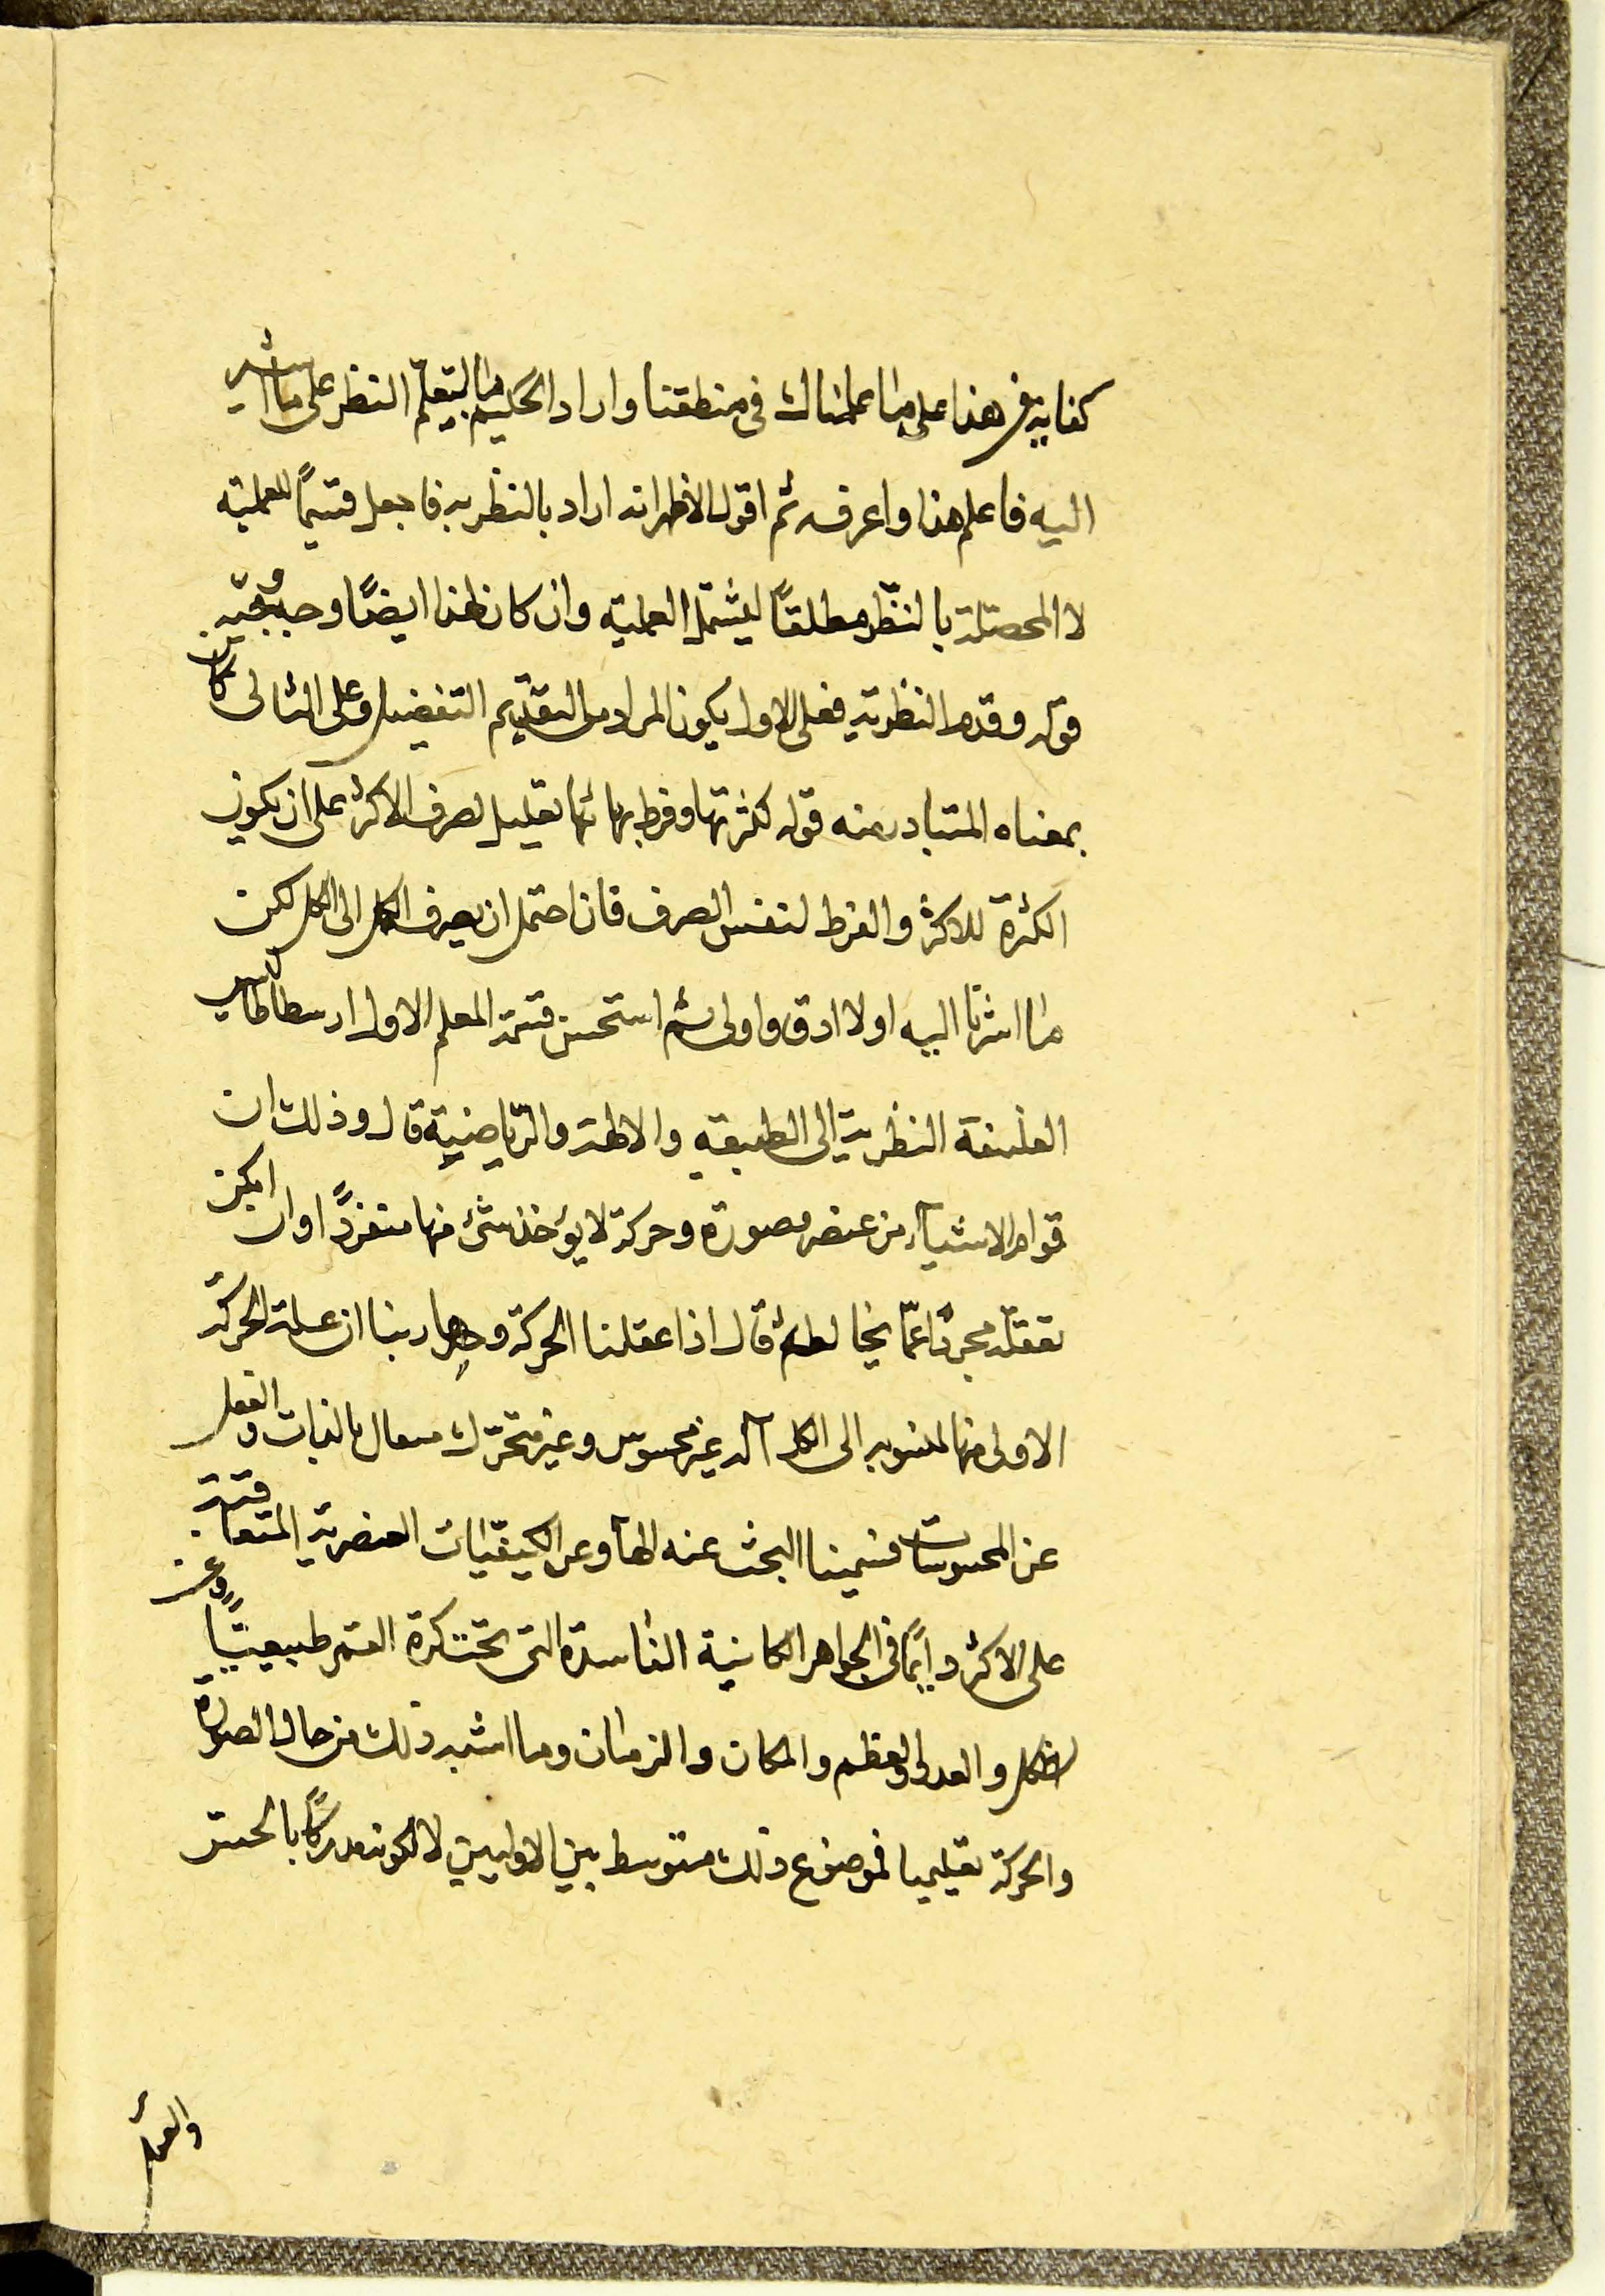 كفاية فى هذا على ما علمناك فى منطقنا واراد الحكيم ما ليتعلم النظر على ما اشير
اليه فاعلم هذا واعرفه ثم اقول الاظهر انه اراد بالنظرية فا جعل قسيمًا للعملية
لا المحصلة بالنظر مطلقًا ليشتمل العملية وان كان لهذا ايضًا وجه
قوله وقدم النظرية فعلى الاول يكون المراد من التقديم التفضيل وعلى الثانى كان
بمعناه المتبادر منه قوله لكثرتها وفرط بهائها تعليل لصرف الاكثر على ان يكون
الكثرة للاكثر والفرط لنفس الصرف فان احتمل ان يصرف الكل الى الكل لكن
ما اشرنا اليه اولا ادق واولى ثم استحسن قسمة المعلم الاول ارسطاطاليس
الفلسفة النظرية الى الطبيعية والالهية والرياضية قال وذلك ان
قوام الاشياء من عنصر وصورة وحركة لا يؤخذ شئ منها منفردًا وان امكن
تعقله مجردًا عما يخالطه قال اذا عقلنا الحركة وحدها راينا ان علة الحركة
الاولى منها المنسوبة الى الكل آله غير محسوس وغير متحرك متعال بالذات والفعل
عن المحسوسات فسمينا البحث عنه الهيا وعن الكيفيات العنصرية المتعاقبة
على الاكثر دايمًا فى الجواهر الكاينة الفاسدة التى تحت كرة القمر طبيعيًا وعن
الشكل والعدد والعظم والمكان والزمان وما اشبه ذلك من حال الصورة
والحركة تعليميا فموضوع ذلك متوسط بين الاوليين لا لكونه مدركًا بالحس
والعقل